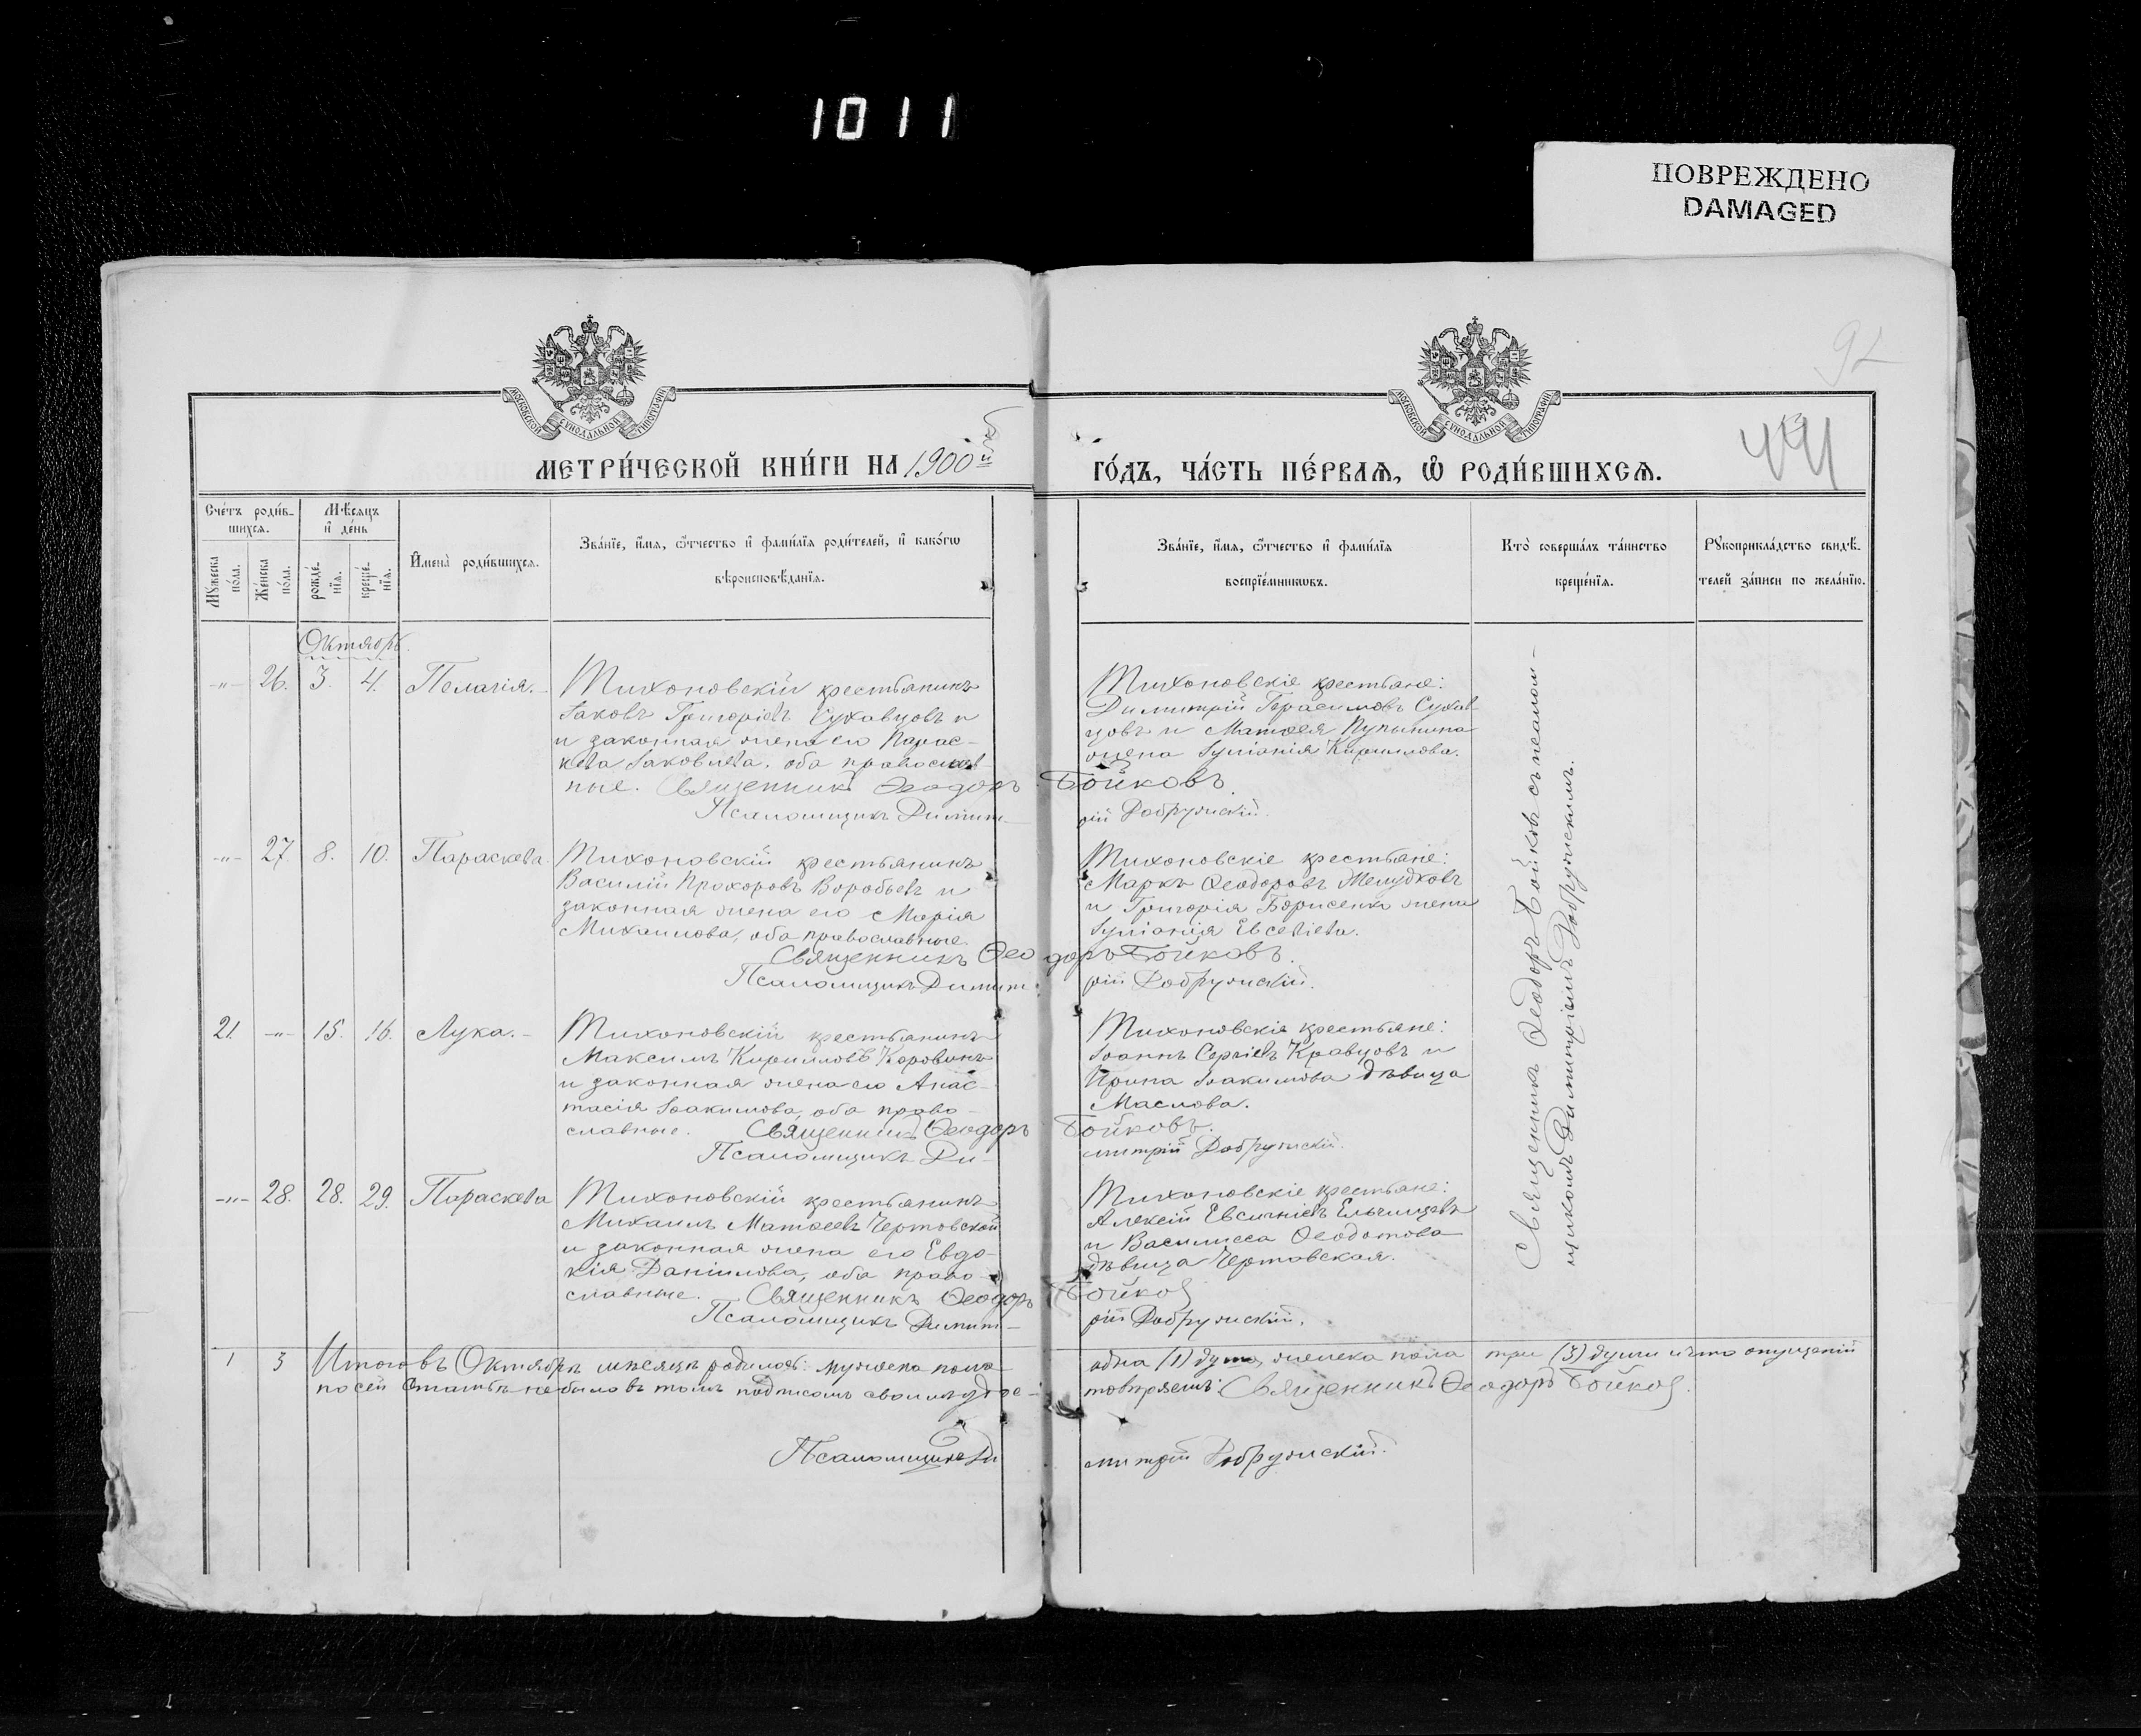 1011
ПОВРЕЖДЕНО
DAMAGED
92
МОСКОВСКОЙ СУНОДАЛЬНОЙ ТИПОГРАФІИ
МОСКОВСКОЙ СУНОДАЛЬНОЙ ТИПОГРАФІИ
МЕТРИ́ЧЕСКОЙ КНИ́ГИ НА 1900й
ГО́ДЪ, ЧА́СТЬ ПЕ́РВАѦ, Ѡ҆ РОДИ́ВШИХСѦ.
Сче́тъ роди́в-
шихсѧ.
Мѣ́сѧцъ
и҆ де́нь
Мꙋ́жеска по́ла.
Же́нска по́ла.
рожде́-нїѧ.
креще́-нїѧ.
И҆мена̀ роди́вшихсѧ.
Зва́нїе, и҆́мѧ, ѻ҆́тчество и҆ фами́лїѧ роди́телей, и҆ како́гѡ
вѣроисповѣ́данїѧ.
Зва́нїе, и҆́мѧ, ѻ҆́тчество и҆ фами́лїѧ
воспрїе́мникѡвъ.
Кто̀ соверша́лъ та́инство
креще́нїѧ.
Рꙋкоприкла́дство свидѣ́-
телей за́писи по жела́нїю.
Октябрь.
-"- 26. 3. 4. Пелагія.-
Тихоновскій крестьянинъ
Іаковъ Григоріевъ Сухавцовъ и
и законная жена его Парас-
кева Іаковлева. оба православ-
ные. Священникъ Ѳеодоръ Бойковъ.
Псаломщикъ Димит- рій Добружскій.
Тихоновскіе крестьяне:
Димитрій Герасимовъ Сухав
цовъ и Матѳея Пупынина
жена Іуліанія Кириллова.
-"- 27. 8. 10. Параскева.
Тихоновскій крестьянинъ
Василій Прохоровъ Воробьевъ и
законная жена его Марія
Михаилова, оба православные.
Священникъ Ѳеодоръ Бойковъ.
Псаломщикъ Димит- рій Добружскій.
Тихоновскіе крестьяне:
Маркъ Ѳеодоровъ Желудковъ
и Григорія Борисенка жена
Іуліанія Евсевіева.
21. -"- 15. 16. Лука.-
Тихоновскій крестьянинъ
Максимъ Кирилловъ Коровинъ
и законная жена его Анас-
тасія Іоакимова, оба право-
славные. Священникъ Ѳеодоръ Бойковъ.
Псаломщикъ Ди- митрій Добружскій.
Тихоновскіе крестьяне:
Іоаннъ Сергіевъ Кравцовъ и
Ирина Іоакимова дѣвица
Маслова.
-"- 28. 28. 29. Параскева
Тихоновскій крестьянинъ
Михаилъ Матѳеевъ Чертовской
и законная жена его Евдо-
кія Даніилова, оба право-
славные. Священникъ Ѳеодоръ Бойковъ
Псаломщикъ Димит- рій Добружскій.
Тихоновскіе крестьяне:
Алексій Евсигніевъ
и Василисса Ѳеодотова
дѣвица Чертовская.
Священникъ Ѳеодоръ Бойковъ съ псалом-
щикомъ Димитріемъ Добружскимъ.
1 3 Итого въ Октябрѣ мѣсяцѣ родилось: мужеска пола одна (1) душа, женска пола три (3) души и что опущеній
по сей статьѣ не было въ томъ подписомъ своимъ удос- товѣряемъ: Священникъ Ѳеодоръ Бойковъ.
Псаломщикъ Ди митрій Добружскій.